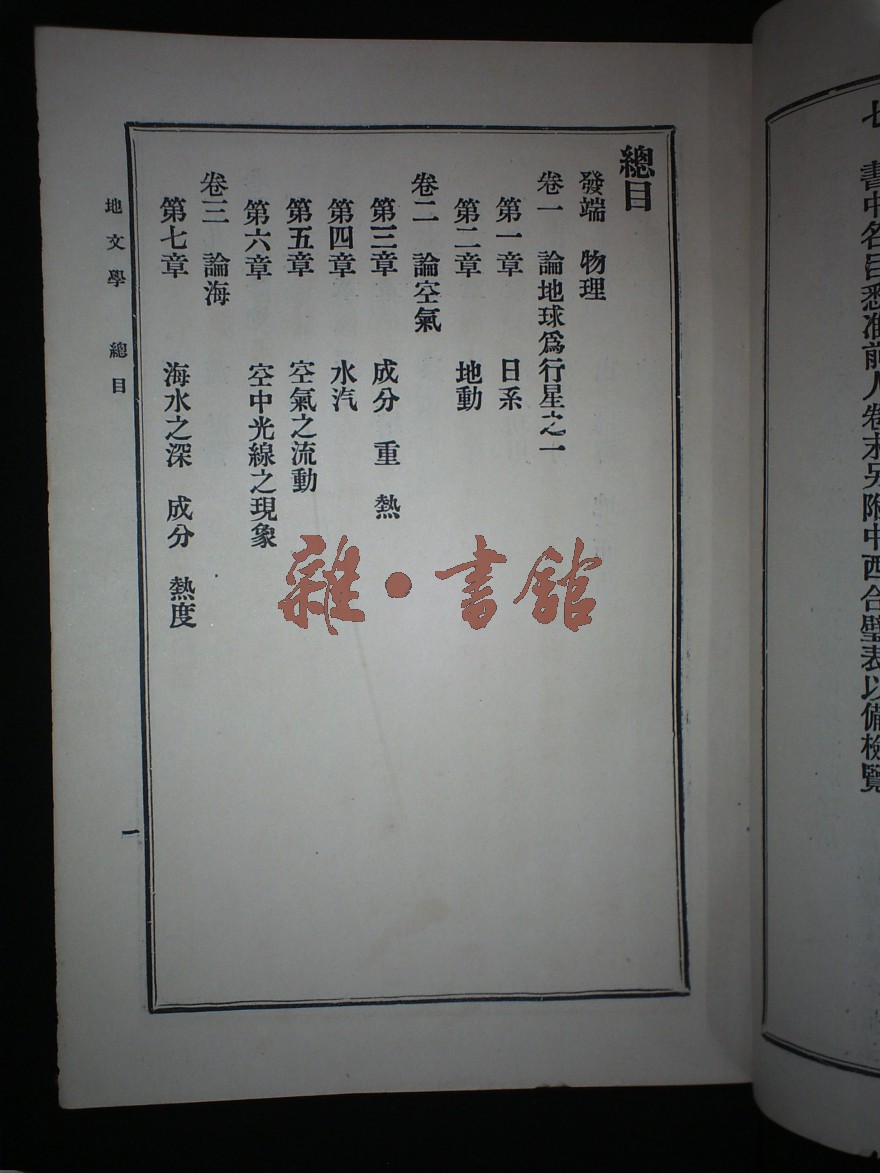 七 書中名目悉準前人卷末另附中西合璧表以備檢覽
總目
發端 物理
卷一 論地球爲行星之一
第一章 日系
第二章 地動
卷二 論空氣
第三章 成分 重 熱
第四章 水汽
第五章 空氣之流動
第六章 空中光線之現象
卷三 論海
第七章 海水之深 成分 熱度
地文學 總目
一
雜·書館